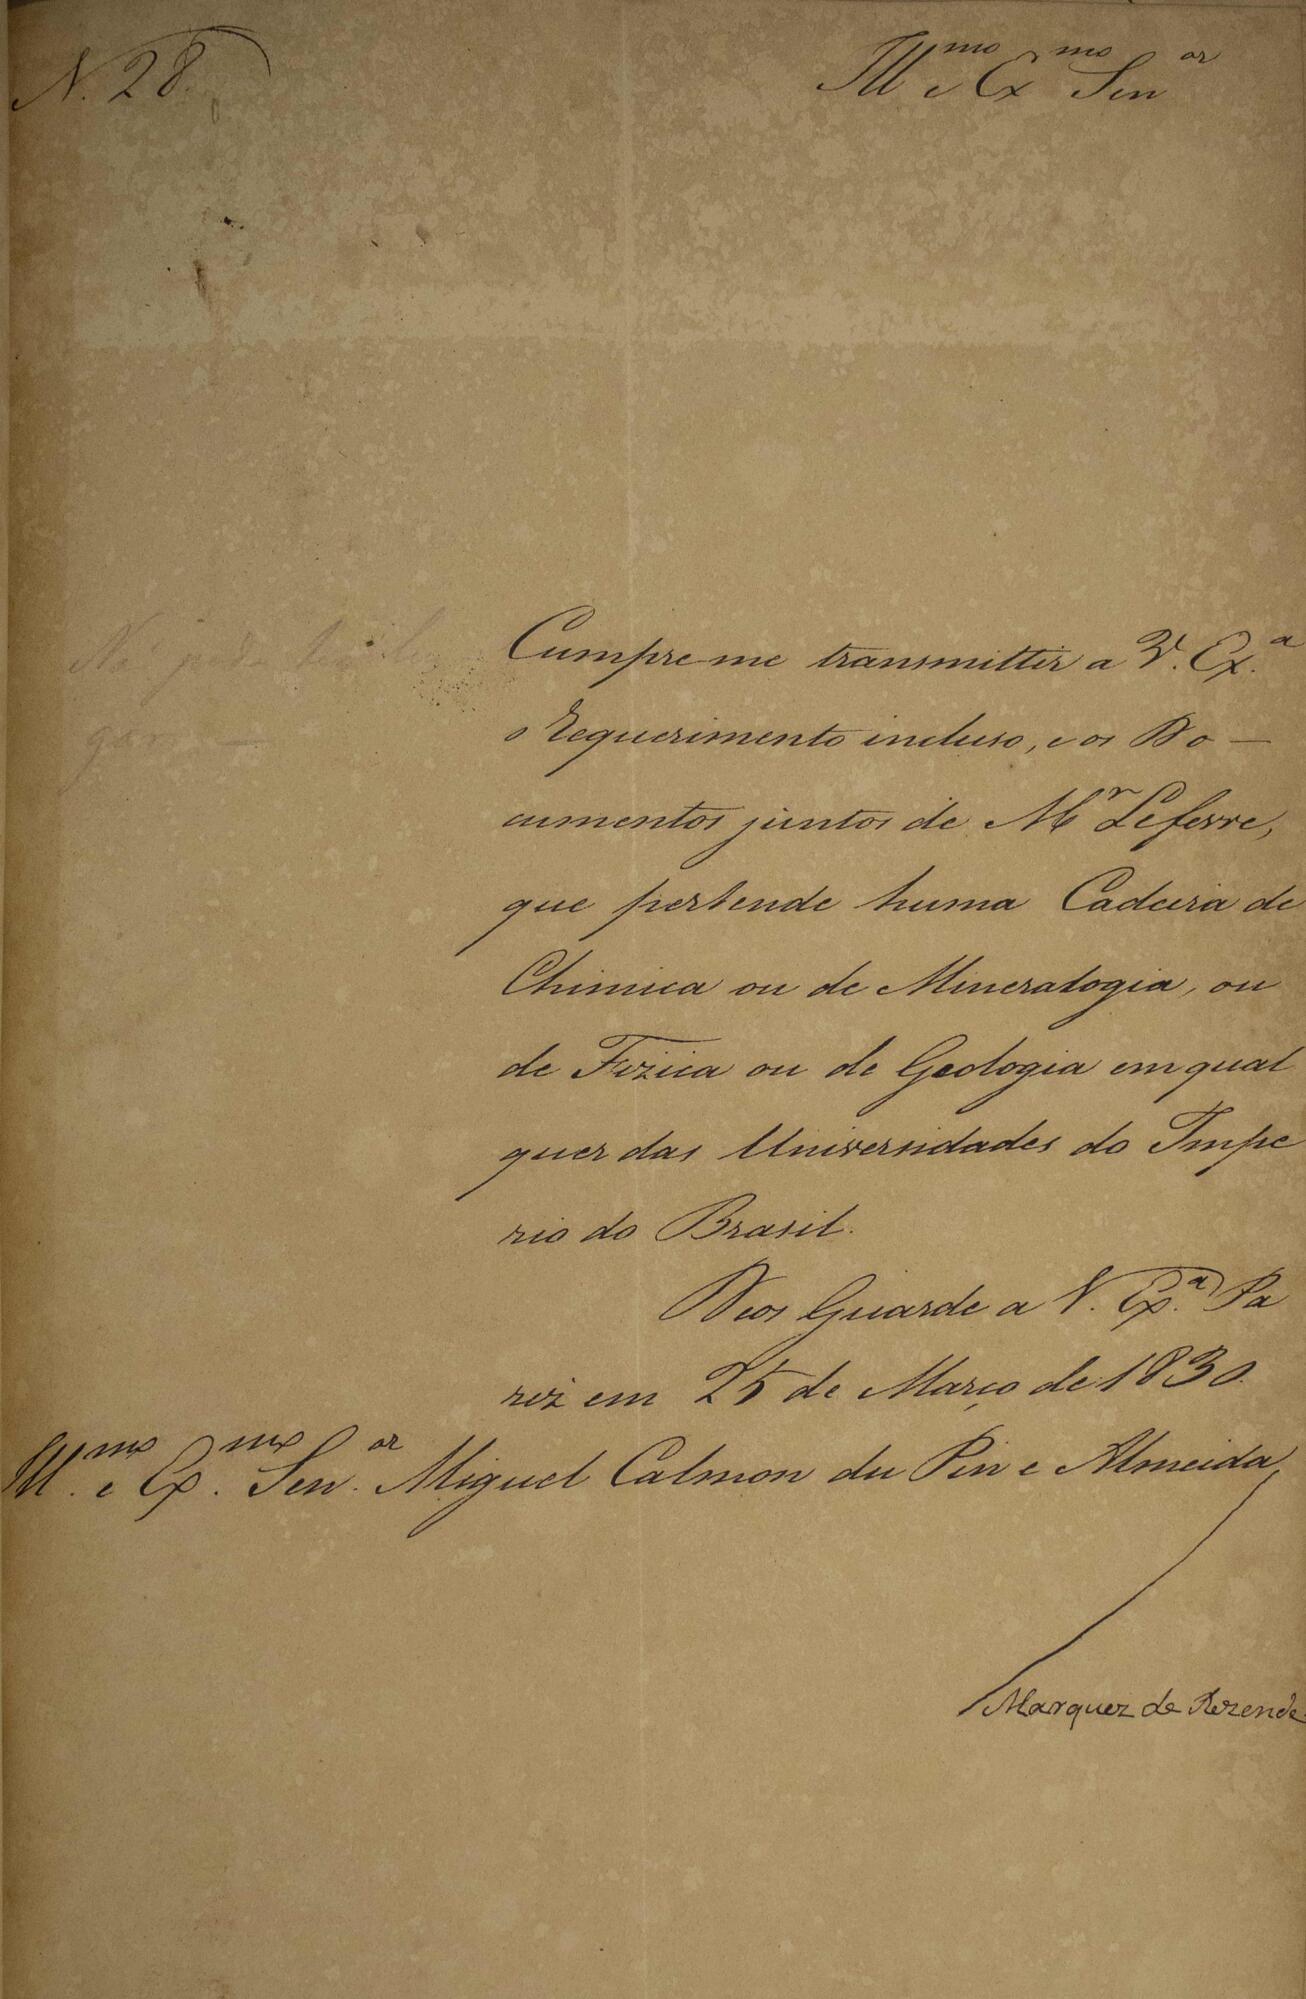 N. 28.
Ill^mo e Ex^mo Sen^or
Cumpre-me transmittir a V. Ex.^a
o Requerimento incluso, e os Do-
cumentos juntos de M^r Lefevre,
que pertende huma Cadeira de
Chimica ou de Mineralogia, ou
de Fizica ou de Geologia em qual
quer das Universidades do Impe
rio do Brasil.
Deos Guarde a V. Ex.^a Pa
riz em 25 de Março de 1830.
Ill.^mo e Ex.^mo Sen.^or Miguel Calmon du Pin e Almeida
Marquez de Rezende
Não pode ter lu
gar. —